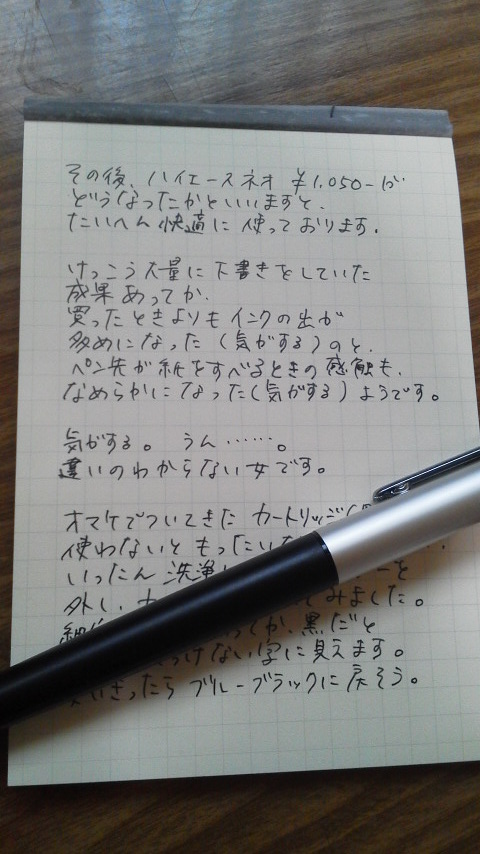 その後、ハイエースネオ ¥1,050-が
どうなったかといいますと、
たいへん快適に使っております。
けっこう大量に下書きをしていた
成果あってか、
買ったときよりもインクの出が
多めになった(気がする)のと、
ペン先が紙をすべるときの感触も、
なめらかになった(気がする)ようです。
気がする。 うん……。
違いのわからない女です。
オマケでついてきた カートリッジ(
使わないともったいな
いったん 洗浄 ーを
外し、カ てみました。
ってか、黒だと
っけない字に見えます。
いきったら ブルーブラックに戻そう。